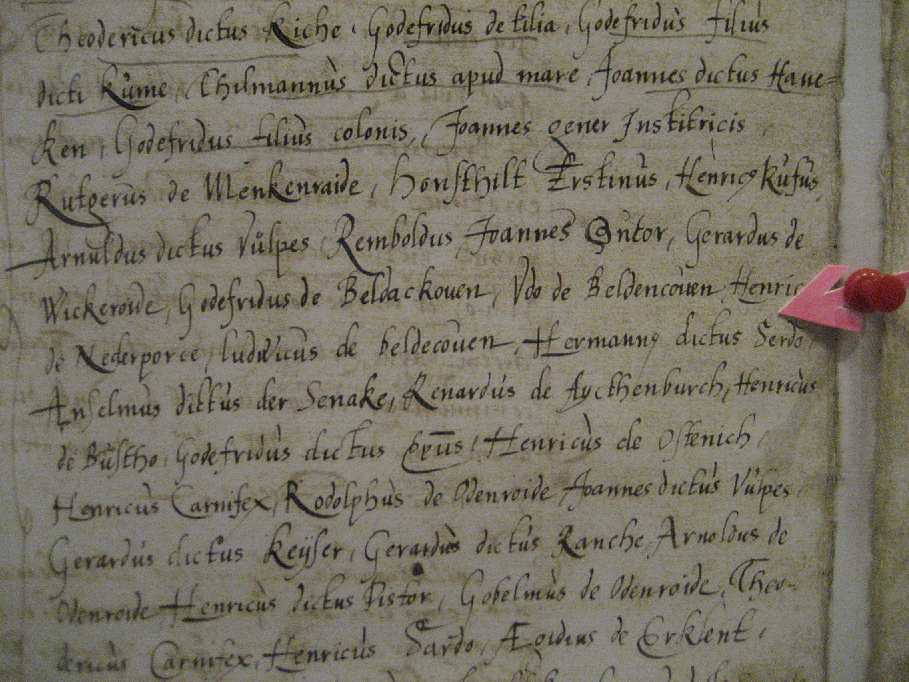 Theodericus dictus Riche, Godefridus de tilia, Godefridùs filiùs
dicti kùme, Thilmannùs dictus apud mare, Joannes dictus Haue=
ken, Godefridus filiùs colonis, Joannes gener Institricis,
Rutgerus de Menkenraide, Honsthilt Erstinùs, Henricq Rùfùs,
Arnuldus dictus Vùlpes, Remboldus, Joannes Sùtor, Gerardus de
Wickeroide, Godefridus de Beldackouen, Vdo de Beldencoùen, Henric
de Nederporce, ludwicùs de beldecoùen, Hermannq dictus Serdo,
Anselmùs dictùs der Senake, Renardùs de Aycthenburch, Henricùs
de Bùstho, Godefridùs dictus Henricùs de Ostenich,
Henricùs Carnifex, Rodolphùs de Odenroide Joannes dictùs Vùlpes,
Gerardùs dictus Keÿser, Gerardùs dictùs Ranche, Arnoldus de
Odenroide, Henricùs dictus Pistor, Gobelmùs de Odenroide, Theo-
dericùs Carnifex, Henricùs Sardo, Ægidius de Erklent,